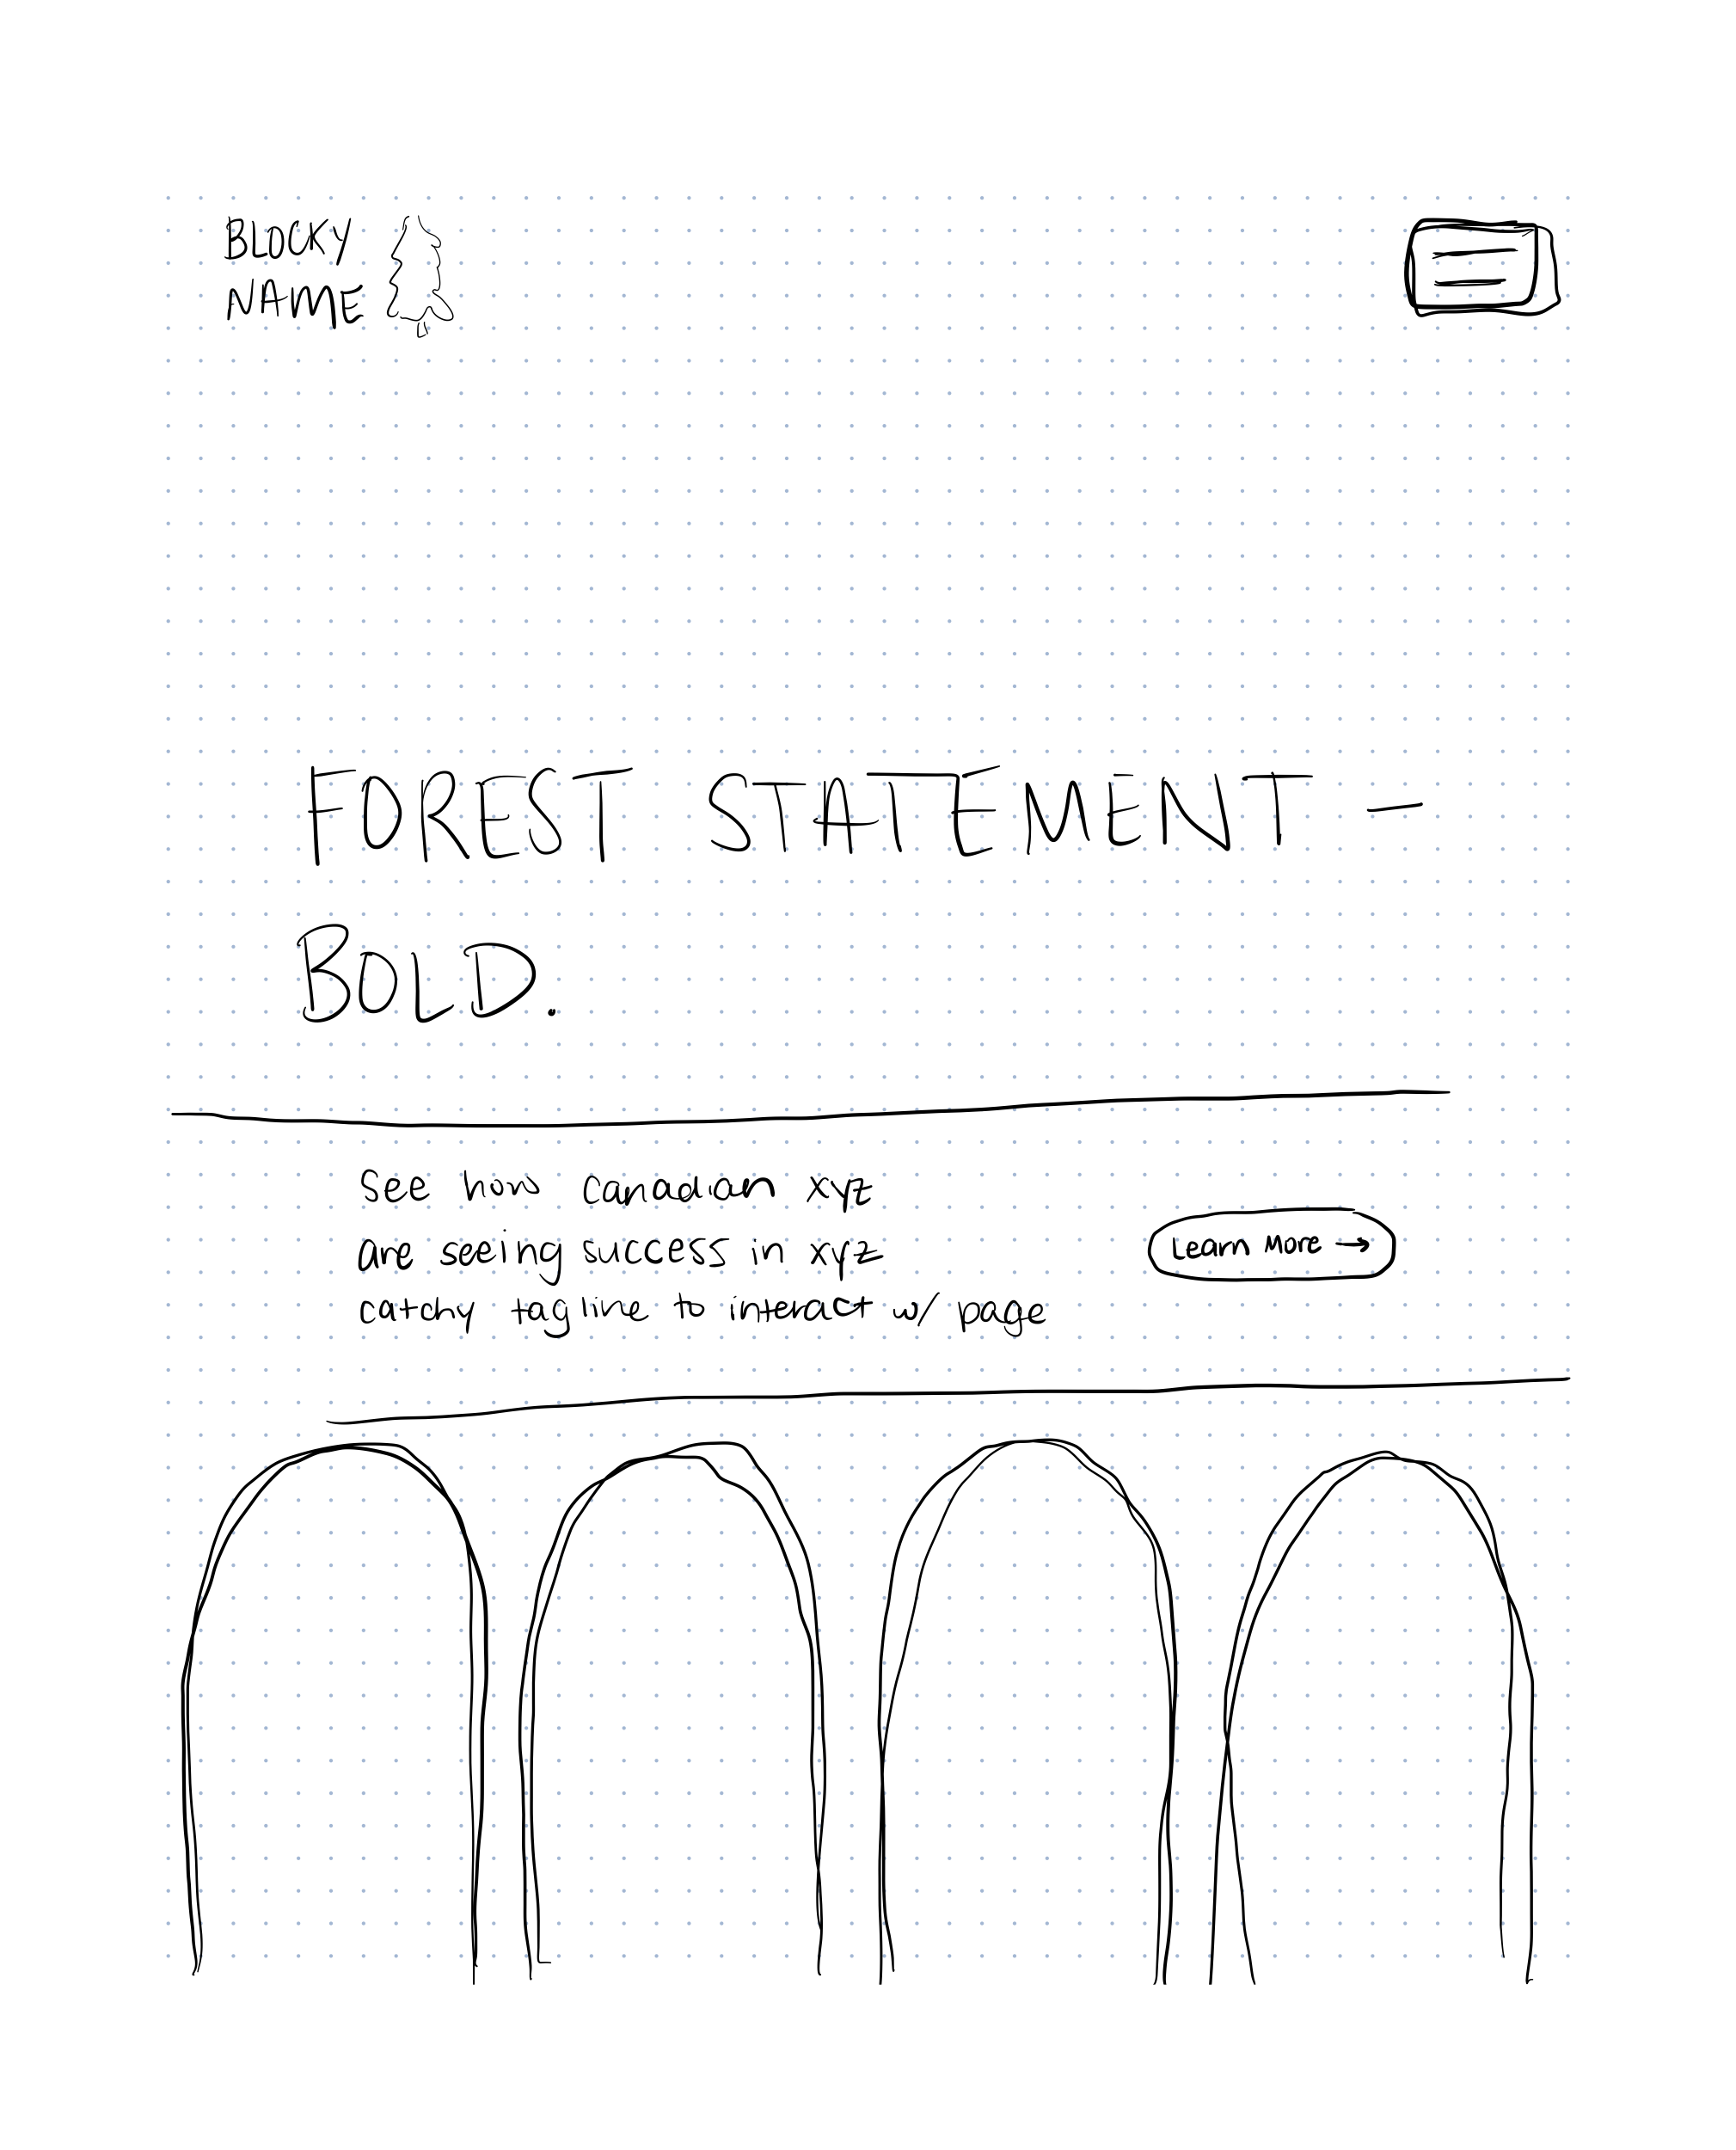 BLOCKY
NAME
FOREST STATEMENT –
BOLD.
See how Canadian xyz
are seeing success in xyz
catchy tagline to interact w/ page
Learn More →